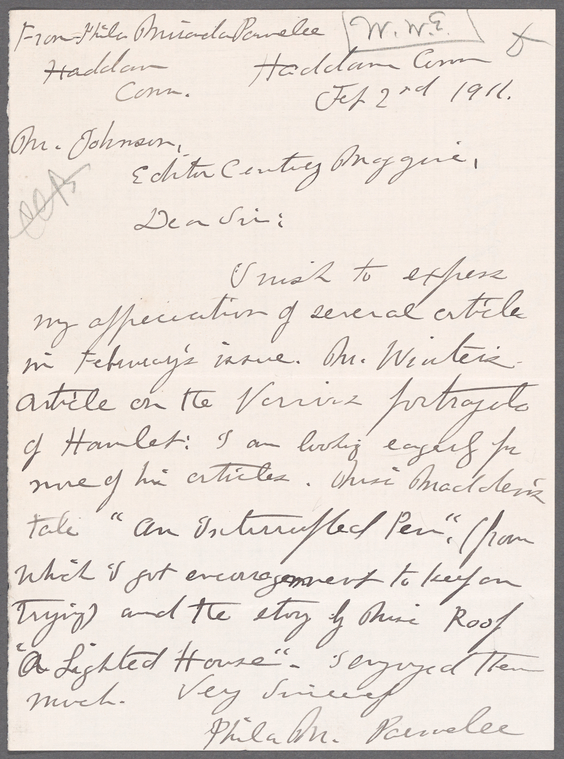 From Phila Miranda Parmelee
W.W.E.
Haddam
Haddam Conn
Conn.
Feb 2nd 1911.
Mr. Johnson,
Editor Century Magazine,
Dear Sir:
I wish to express
my appreciation of several article
in February's issue. Mr. Winter's
article on the Various portrayals
of Hamlet: I am looking eagerly for
more of his articles. Miss Madden's
tale "An Interrupted Pen", (from
which I got encouragement to keep on
trying) and the story by Miss Roof
"A Lighted House" - I enjoyed them
much. Very Sincerely
Phila M. Parmelee